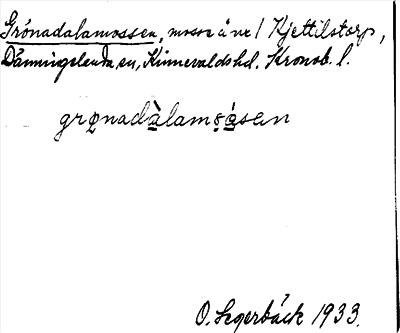 Grönadalamossen, mosse å ne 1 Kjettilstorp,
Dänningelanda sn, Kinnevaldshd. Kronob. l.
grønadàlamǫ́sen
O. Segerbäck 1933.